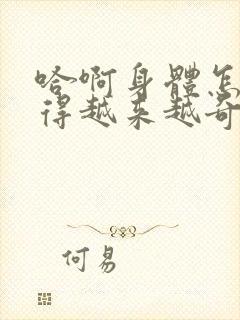 哈啊身體怎
得越来越奇
何易